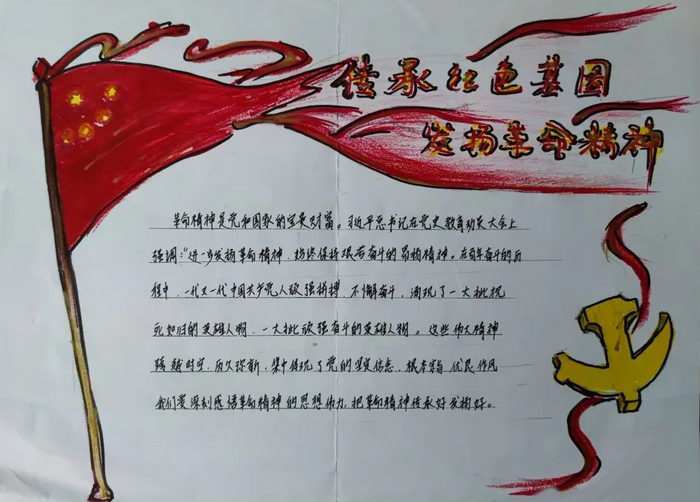 传承红色基因
发扬革命精神
革命精神是党和国家的宝贵财富。习近平总书记在党史教育动员大会上
强调:“进一步发扬革命精神，始终保持艰苦奋斗的昂扬精神。在百年奋斗的历
程中，一代又一代中国共产党人顽强拼搏，不懈奋斗，涌现了一大批视
死如归的英雄人物，一大批顽强奋斗的英雄人物。这些伟大精神
跨越时空，历久弥新，集中体现了党的坚定信念，根本宗旨，优良作风
我们要深刻感悟革命精神的思想伟力，把革命精神传承好发扬好。